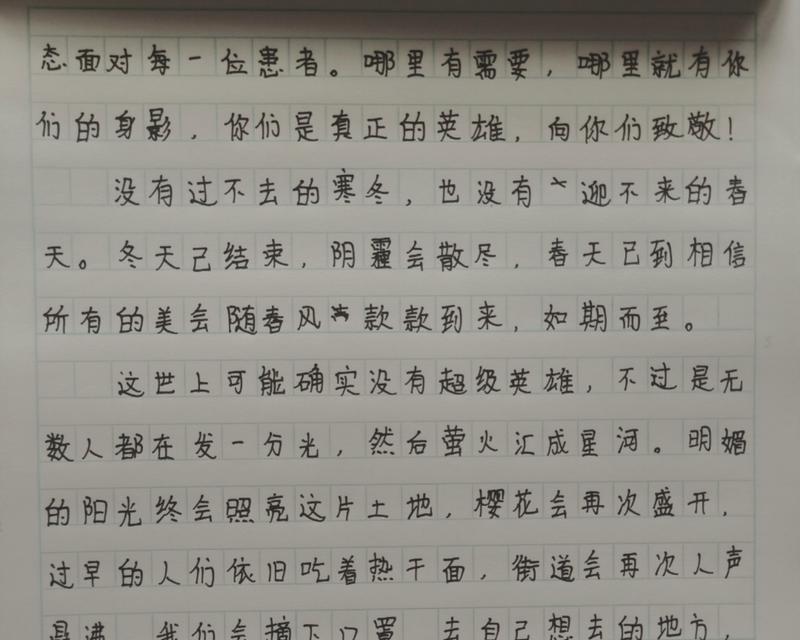 态面对每一位患者。哪里有需要，哪里就有你
们的身影，你们是真正的英雄，向你们致敬！
没有过不去的寒冬，也没有迎不来的春
天。冬天已结束，阴霾会散尽，春天已到相信
所有的美会随春风款款到来，如期而至。
这世上可能确实没有超级英雄，不过是无
数人都在发一分光，然后萤火汇成星河。明媚
的阳光终会照亮这片土地，樱花会再次盛开，
过早的人们依旧吃着热干面，街道会再次人声
鼎沸，我们会摘下口罩，去自己想去的地方，